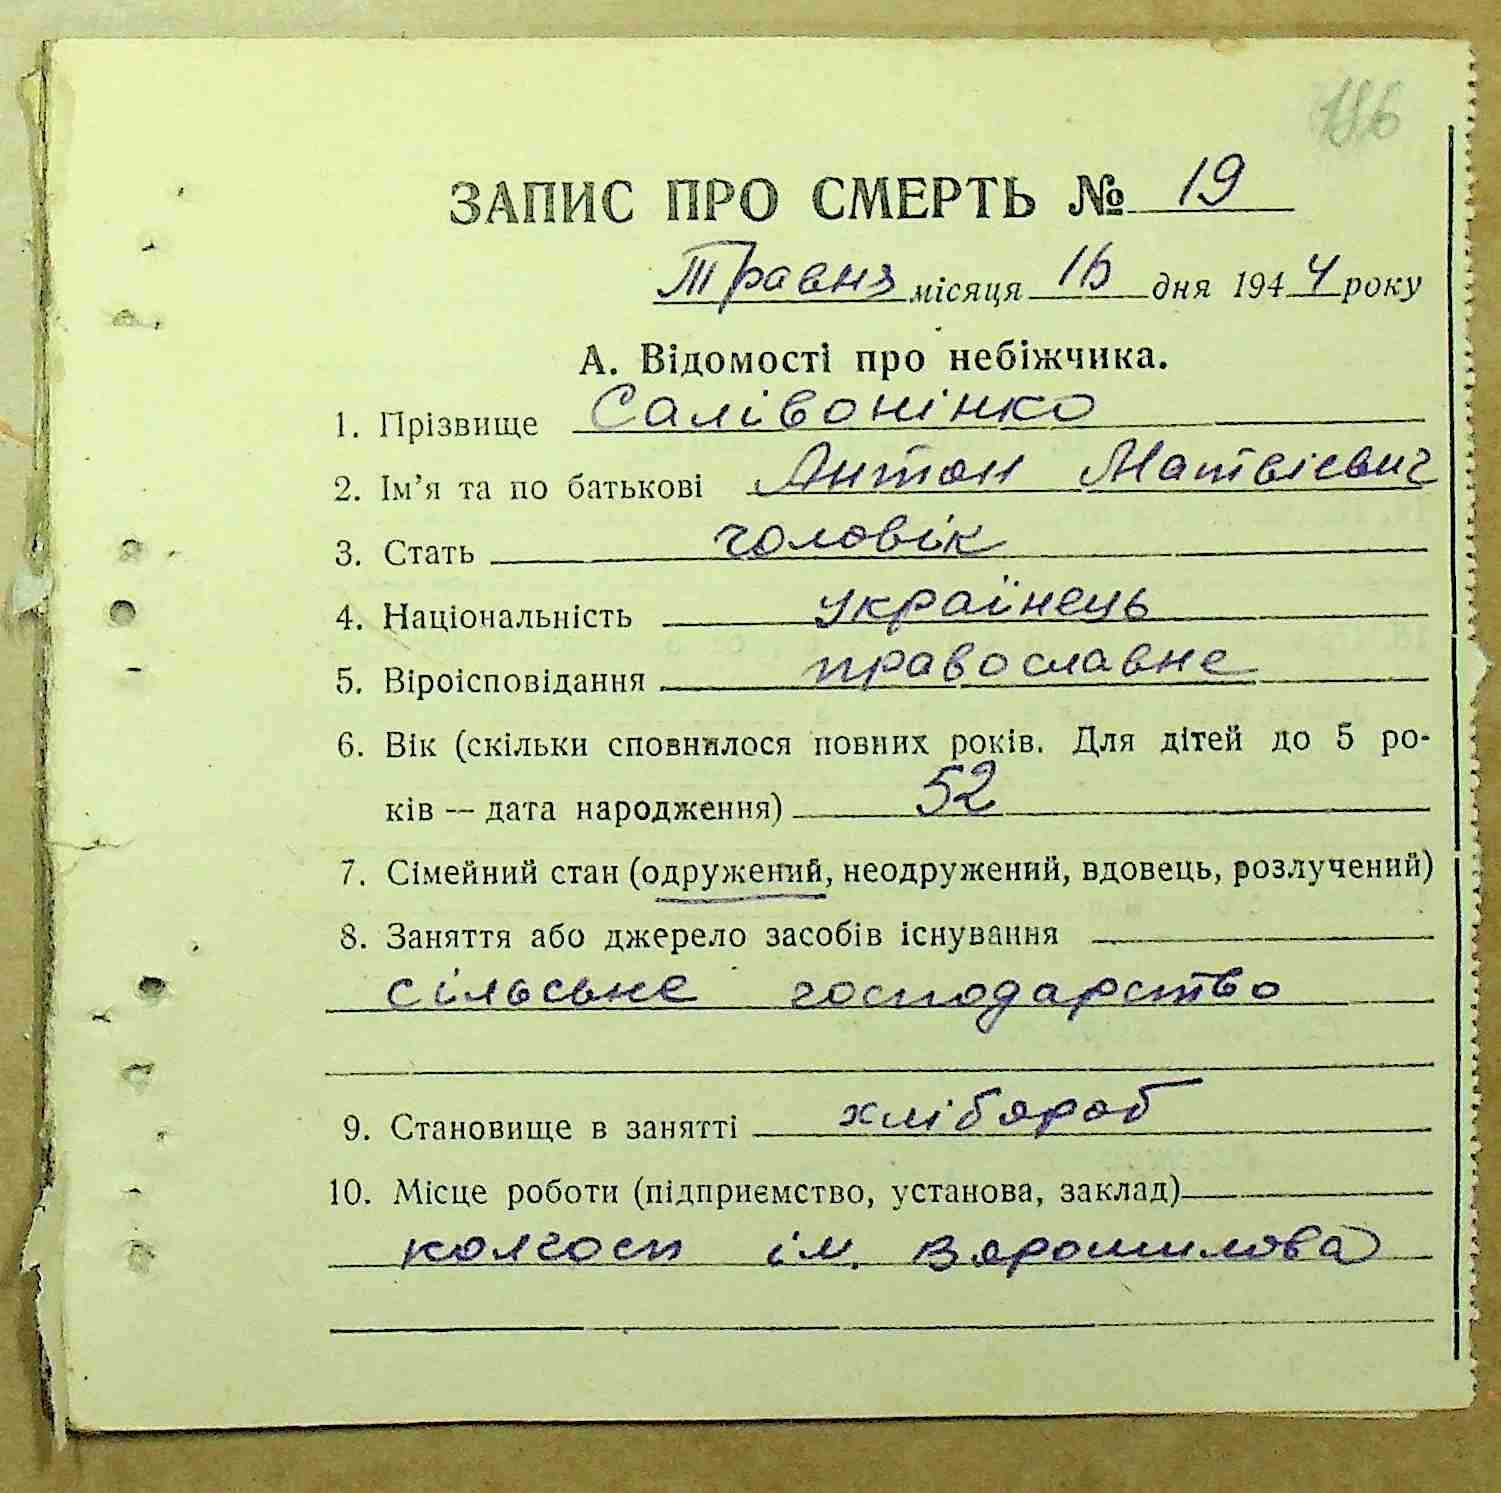 186
ЗАПИС ПРО СМЕРТЬ № 19
Травня місяця 16 дня 1944 року
А. Відомості про небіжчика.
1. Прізвище Салівонінко
2. Ім'я та по батькові Антон Матвієвич
3. Стать чоловік
4. Національність українець
5. Віроісповідання православне
6. Вік (скільки сповнилося повних років. Для дітей до 5 ро-
ків — дата народження) 52
7. Сімейний стан (одружений, неодружений, вдовець, розлучений)
8. Заняття або джерело засобів існування
сільське господарство
9. Становище в занятті хлібороб
10. Місце роботи (підприємство, установа, заклад)
колгосп ім. Ворошилова